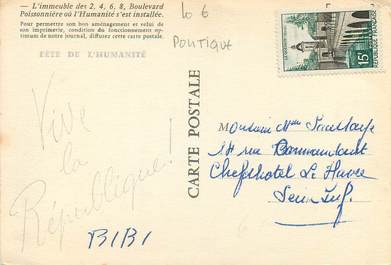 — L'immeuble des 2, 4, 6, 8, Boulevard
Poissonnière où l'Humanité s'est installée.
Pour permettre son bon aménagement et celui de
son imprimerie, condition du fonctionnement op-
timum de notre journal, diffusez cette carte postale.
FÊTE DE L'HUMANITÉ
10 €
POLITIQUE
15F
Vive
la
République!
BIBI
CARTE POSTALE
Monsieur Mme
rue Commandant
Le Havre